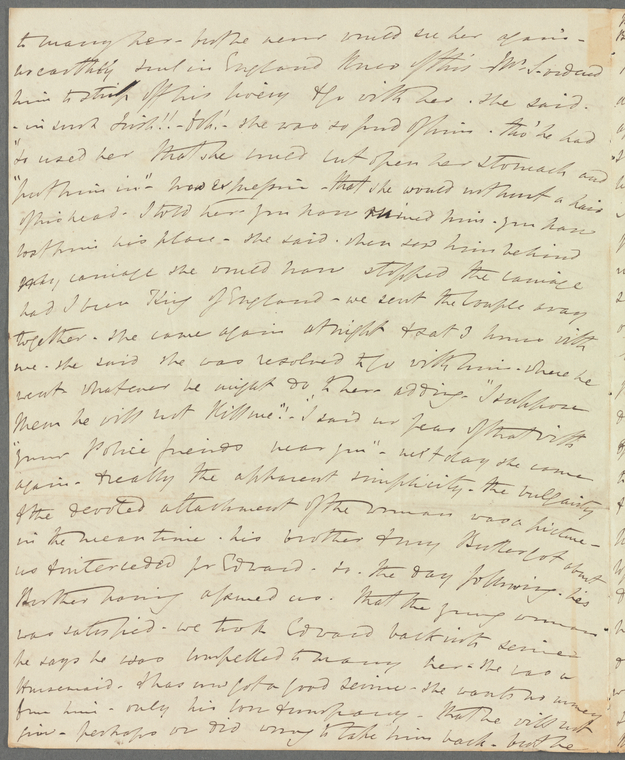 to marry her - but he never would see her again -
no earthly soul in England knew of this - Mr S. ordered
him to strip off his livery & go with her . she said -
- in such Irish!! - Oh! - she was so fond of him - tho' he had
"so used her that she would cut open her stomach and
"put him in" - expression - that she would not hurt a hair
of his head - I told her you have ruined him - you have
lost him his place - she said - when saw him behind
carriage she would have stopped the carriage
had I been King of England - we sent the couple away
together - she came again at night & sat 3 hours with
me - she said she was resolved to go with him - where he
went whatever he might do to her adding - "I suppose
Mem he will not Kill me"! - "I said no fear of that with
"your Police friends near you" - next day she came
again - & really the apparent simplicity - the vulgarity
& the devoted attachment of the woman was a picture -
in the mean time - his brother & my Butler got about
us & interceded for Edward - so - the day following - his
Brother having assured us - that the young woman
was satisfied - we took Edward back into service
he says he was compelled to marry her - she was a
Housemaid - & has now got a good service - she wants no money
from him - only his love & company - that he will not
give - perhaps we did wrong to take him back - but he